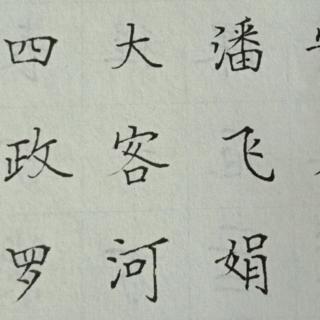 四大潘
政客飞
罗河娟